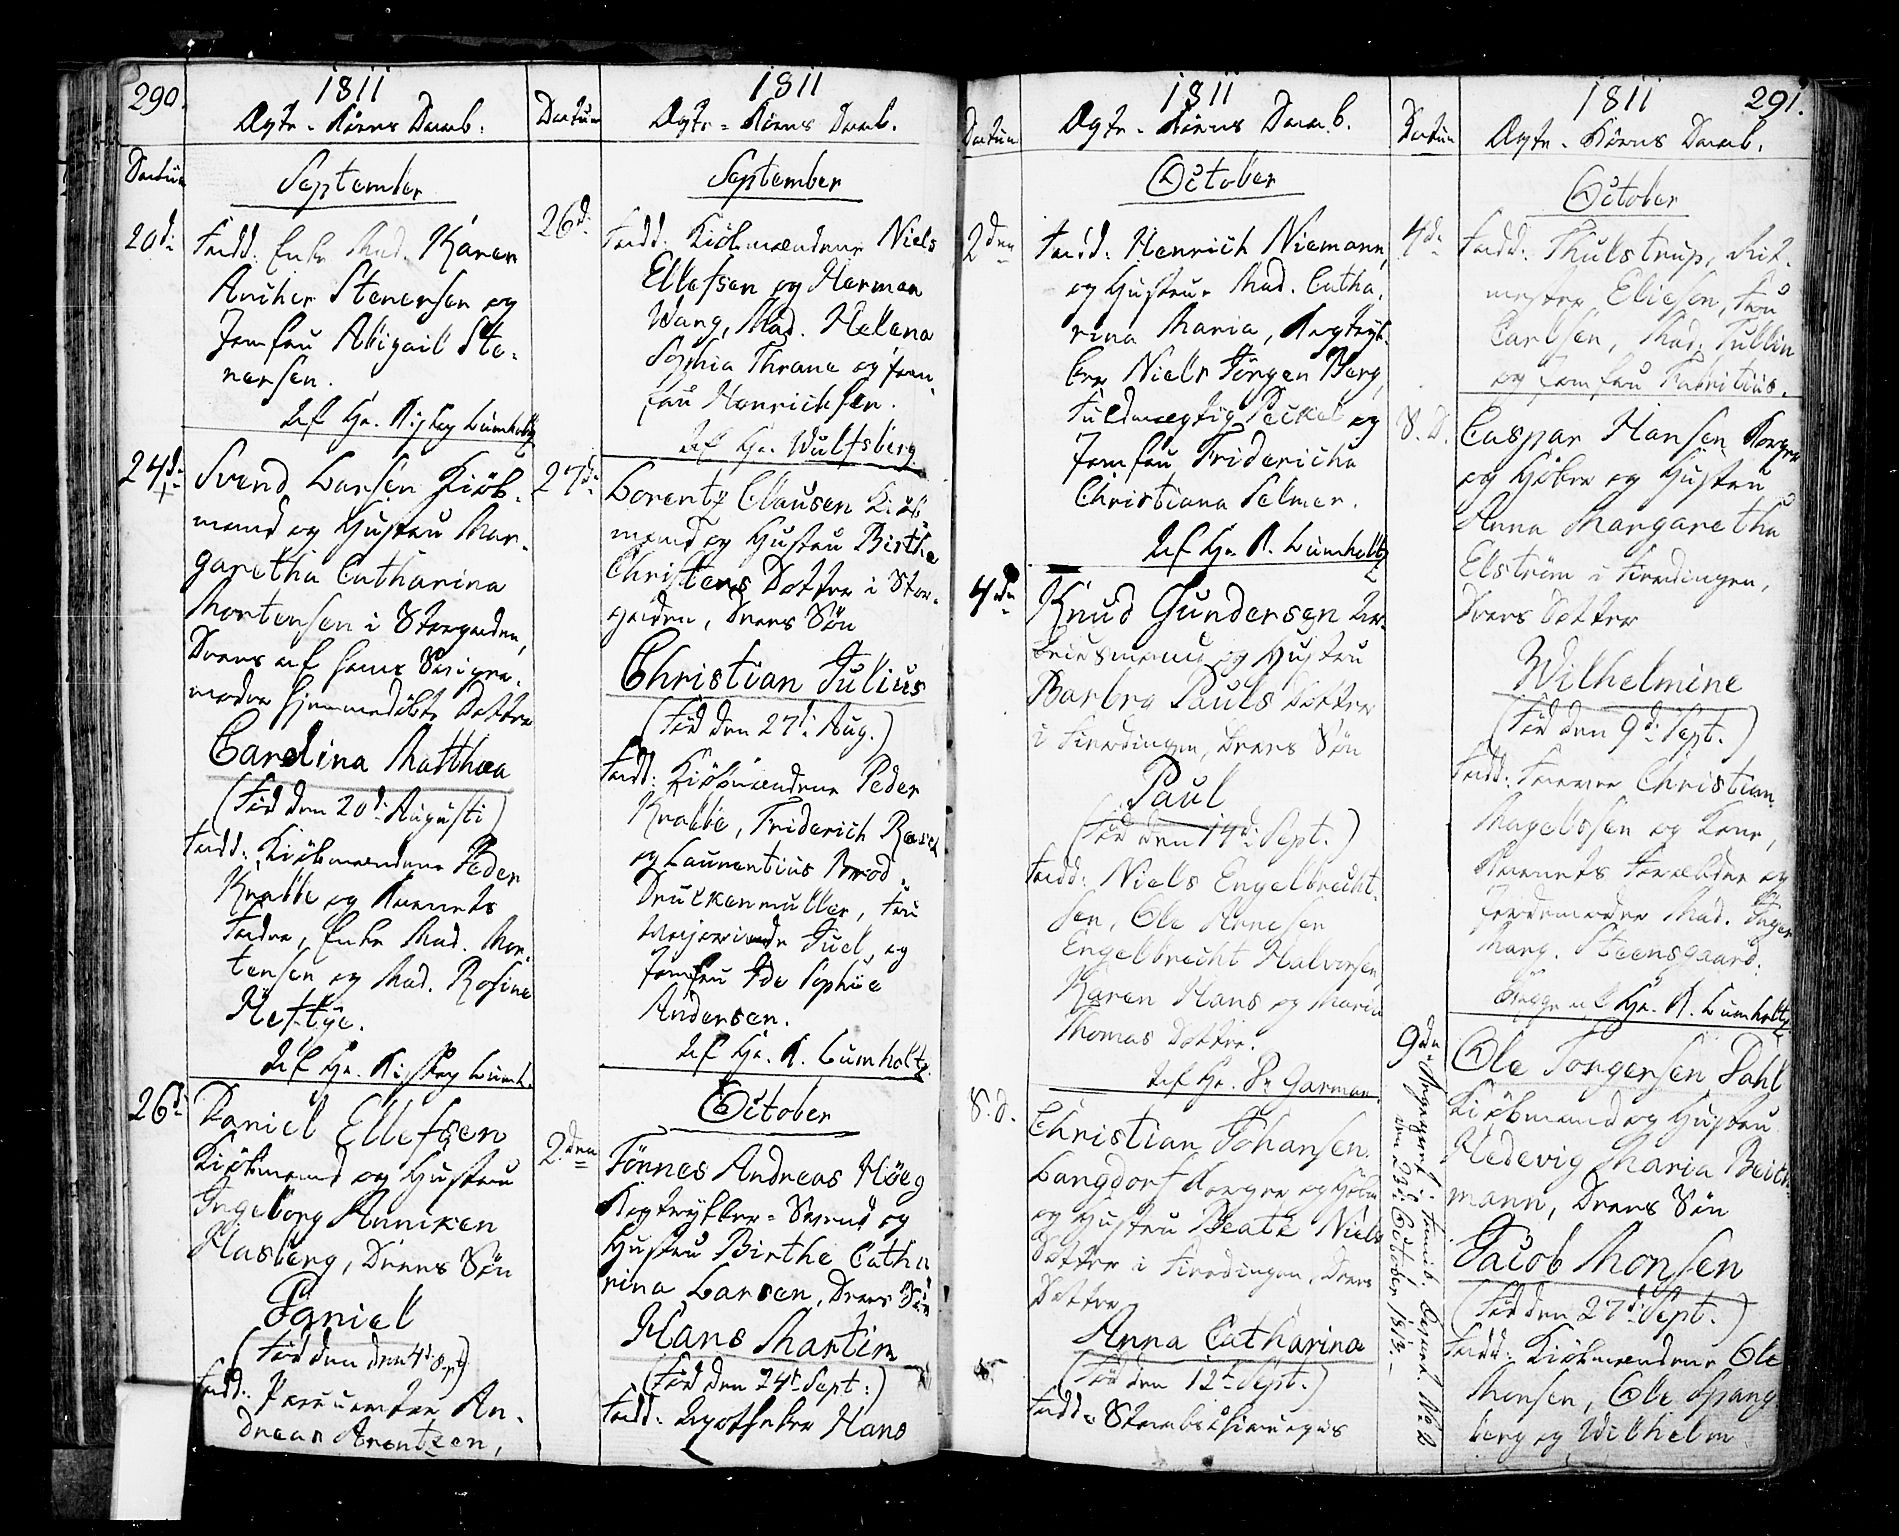 290.
1811
Ægte-Børns Daab.
Datum
September
20d:
Fadd: Enke Mad. Karen
Ancher Stenersen og
Jomfru Abigail Ste-
nersen.
Af Hr. Biskop Lumholtz
24d:
+
Svend Larsen Kiöb-
mand og Hustru Mar-
garetha Catharina
Mortensen i Storgaden,
Deres af
moder hjemmedöbte Datter
Carolina Matthea
(Föd den 20d: Augusti)
Fadd: Kiöbmændene Peder
Krabbe og Barnets
Fader, Enke Mad. Mor-
tensen og Mad. Rosine
Heftye.
Af Hr. Biskop Lumh.
26d:
Daniel Ellefsen
Kiöbmand og Hustru
Ingeborg Anniken
Hasberg, Deres Sön
Daniel
(Föd den den 4d: Sept)
Fadd:
An-
dreas Arentzen,
Datum
1811
Ægte-Børns Daab.
September
26d.
Fadd: Kiöbmændene Niels
Ellefsen og Herman
Wang, Mad. Helena
Sophia Thrane og Jom-
fru Henrichsen.
Af Hr. Wulfsberg.
27d:
Lorentz Clausen Kiöb
mand og Hustru Birthe
Christens Datter i Stor-
gaden, Deres Sön
Christian Julius
(Föd den 27d: Aug.)
Fadd: Kiöbmændene Peder
Krabbe, Friderich
og Laurentius Brod,
Druckenmuller, Fru
Juel, og
Jomfru Ida Sophie
Andersen.
Af Hr. B. Lumholtz.
October
2den
Tönnes Andreas Höeg
Bogtrykker-Svend og
Hustru Birthe Catha
rina Larsen, Deres Sön
Hans Martin
(Föd den 24d: Sept:)
Fadd: Apotheker Hans
Datum
1811
Ægte-Børns Daab.
October
2den
Fadd: Henrich Niemann,
og Hustrue Mad. Catha-
rina Maria, Bogtryk-
ker Niels Jörgen Berg,
Fuldmægtig Peckel og
Jomfru Fridericha
Christiana Selmer.
Af Hr. B. Lumholtz
4de
Knud Gundersen Ar-
beidsmand og Hustru
Barbro Pauls Datter
i Fierdingen, Deres Sön
Paul
(Föd den 14d: Sept.)
Fadd: Niels Engelbrecht-
sen, Ole Arnesen
Engelbrecht Halvorsen,
Karen Hans og Maria
Thomas Datter.
Af Hr. Pr. Garman.
S. D.
Christian Johansen
Langdorf Borger og Höker
og Hustru Beate Niels
Datter i Fierdingen, Deres
Datter
Anna Catharina
(Föd den 12d: Sept.)
Fadd: Stabs Chirurgus
Datum
1811
291.
Ægte-Børns Daab.
October
4de
Fadd: Thulstrup, Rit-
mester Elieson, Fru
Carlsen, Mad. Tullin
og Jomfru Fabritius.
S. D.
Caspar Hansen Borger
og Höker og Hustru
Anna Margaretha
Elström i Fierdingen,
Deres Datter
Wilhelmine
(Föd den 9d: Sept.)
Fadd: Farver Christian
Magelssen og Kone,
Barnets Forældre og
Jordemoder Mad. Inger
Marg. Steensgaard.
Begge af Hr. B. Lumholtz
9de
Ole Torgersen Dahl
Kiöbmand og Hustru
Hedevig Maria Beich-
mann, Deres Sön
Jacob Monsen
(Föd den 27d: Sept.)
Fadd: Kiöbmændene Ole
Monsen, Ole Spang
berg og Wilhelm
den 23d: October 1813.